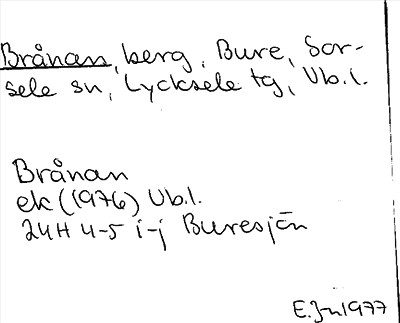 Brånan, berg, Bure, Sor-
sele sn, Lycksele tg, Vb.l.
Brånan
ek (1976) Vb.l.
24H 4-5 i-j Buresjön
E.Jn 1977